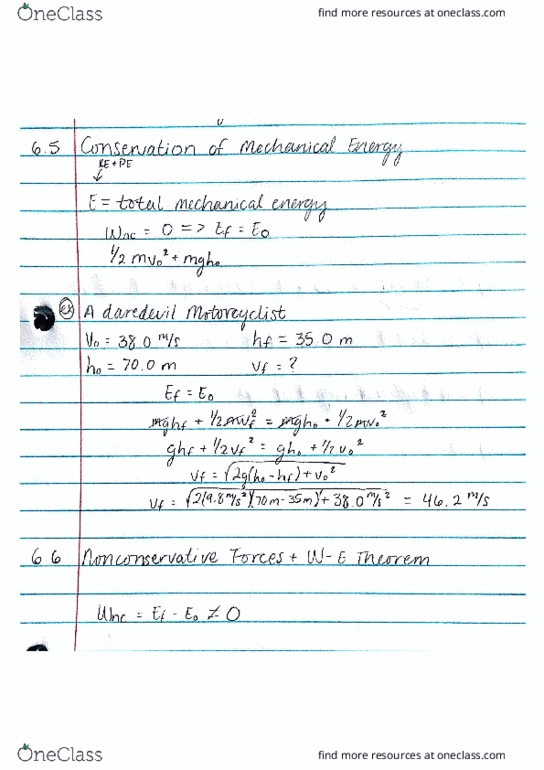 OneClass
find more resources at oneclass.com
6.5 Conservation of Mechanical Energy
KE + PE
↓
E = total mechanical energy
Wnc = 0 => Ef = E₀
½ mv₀² + mgh₀
ex A daredevil Motorcyclist
V₀ = 38.0 m/s hf = 35.0 m
h₀ = 70.0 m vf = ?
Ef = E₀
mghf + ½ mvf² = mgh₀ + ½ mv₀²
ghf + ½ vf² = gh₀ + ½ v₀²
vf = √2g(h₀ - hf) + v₀²
vf = √2(9.8 m/s²)(70m - 35m) + 38.0 m/s² = 46.2 m/s
6.6 Nonconservative Forces + W-E Theorem
Wnc = Ef - E₀ ≠ 0
OneClass
find more resources at oneclass.com